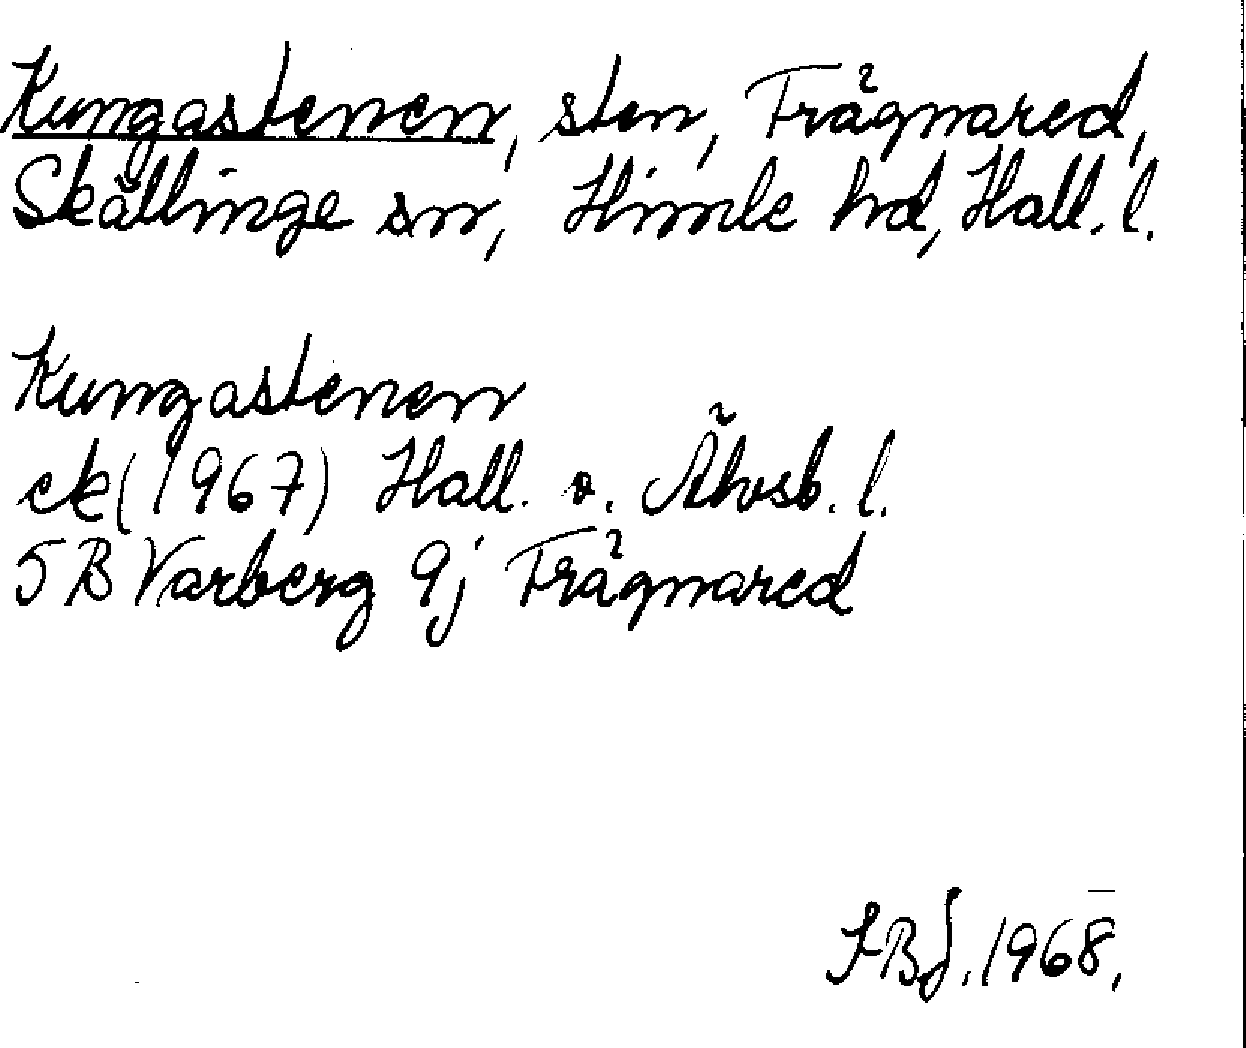 Kungastenen, sten, Trägnared,
Skällinge sn, Himle hd, Hall. l.
Kungastenen
ek (1967) Hall. o. Älvsb. l.
5B Varberg 9j Trägnared
1968.